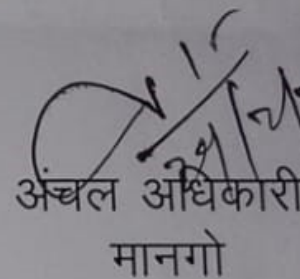 अंचल अधिकारी
मानगो